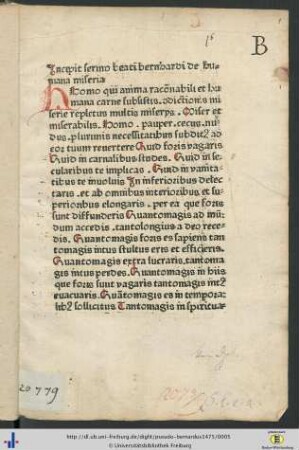 B
Incipit sermo beati bernhardi de hu
mana miseria
O Homo qui anima racōnabili et hu
mana carne subsistis. 9dictionis mi
serie repletus multis miserys. Miser et
miserabilis. Homo. pauper. cecus. nu
dus. plurimis necessitatibus subdit9 ad
cor tuum reuertere Quid foris vagaris
Quid in carnalibus studes. Quid in se
cularibus te implicas. Quid in vanita
tibus te inuoluis In inferioribus delec
taris. et ab omnibus interioribus et su
perionbus elongaris. per ea que foris
sunt diffunderis Quantomagis ad mū
dum accedis. tantolongius a deo rece
dis. Quantomagis foris es sapiens tan
tomagis intus stultus eris et efficieris.
Quantomagis extra lucraris. tantoma
gis intus perdes. Quantomagis in hiis
que foris sunt vagaris tantomagis int9
euacuaris. Quātomagis es in tempora
lib9 sollicitus Tantomagis in spiritua
20779
http://dl.ub.uni-freiburg.de/diglit/pseudo-bernardus1475/0005
© Universitätsbibliothek Freiburg